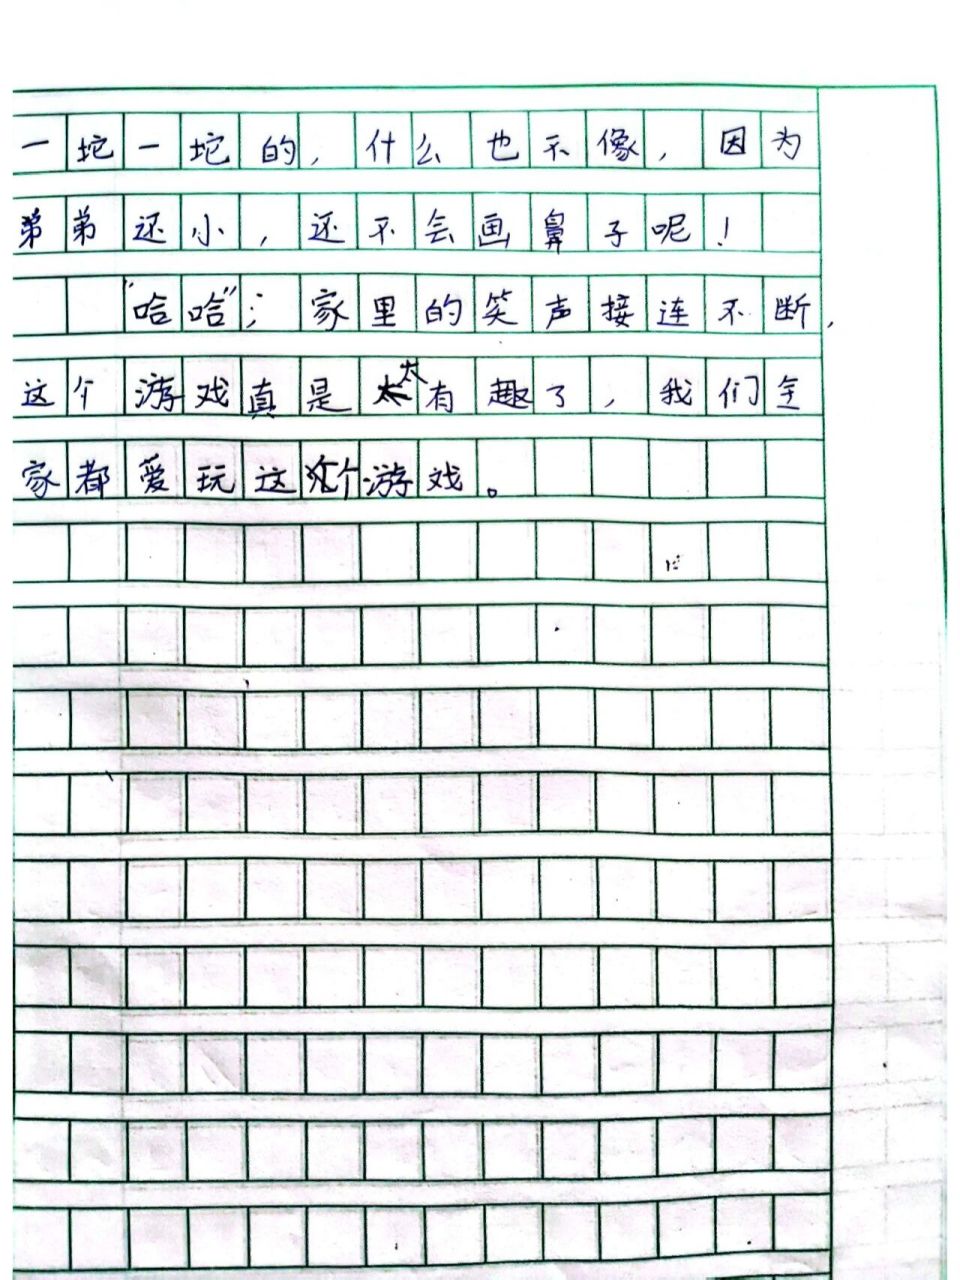 一坨一坨的，什么也不像，因为
弟弟还小，还不会画鼻子呢！
“哈哈”；家里的笑声接连不断，
这个游戏真是太有趣了，我们全
家都爱玩这个游戏。